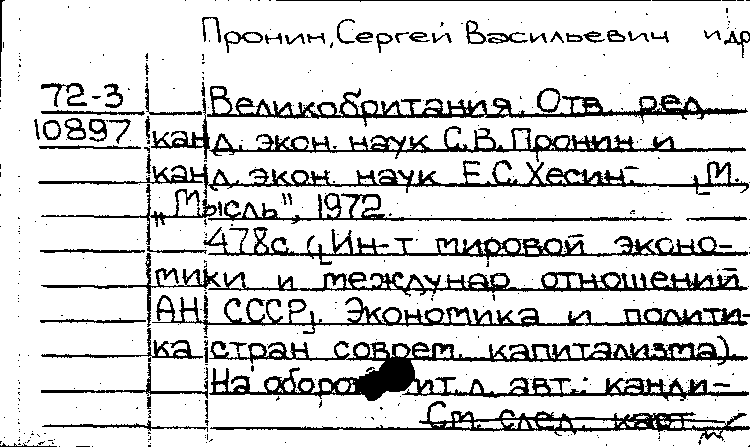 Пронин, Сергей Васильевич и др
72-3
10897
Великобритания. Отв. ред.
канд. экон. наук С.В. Пронин и
канд. экон. наук Е.С. Хесин. [М.,
„Мысль", 1972.
478с. ([Ин-т мировой эконо-
мики и междунар отношений
АН СССР]. Экономика и полити-
ка стран соврем. капитализма).
На оборо тит. л. авт.: канди-
См. след. карт.